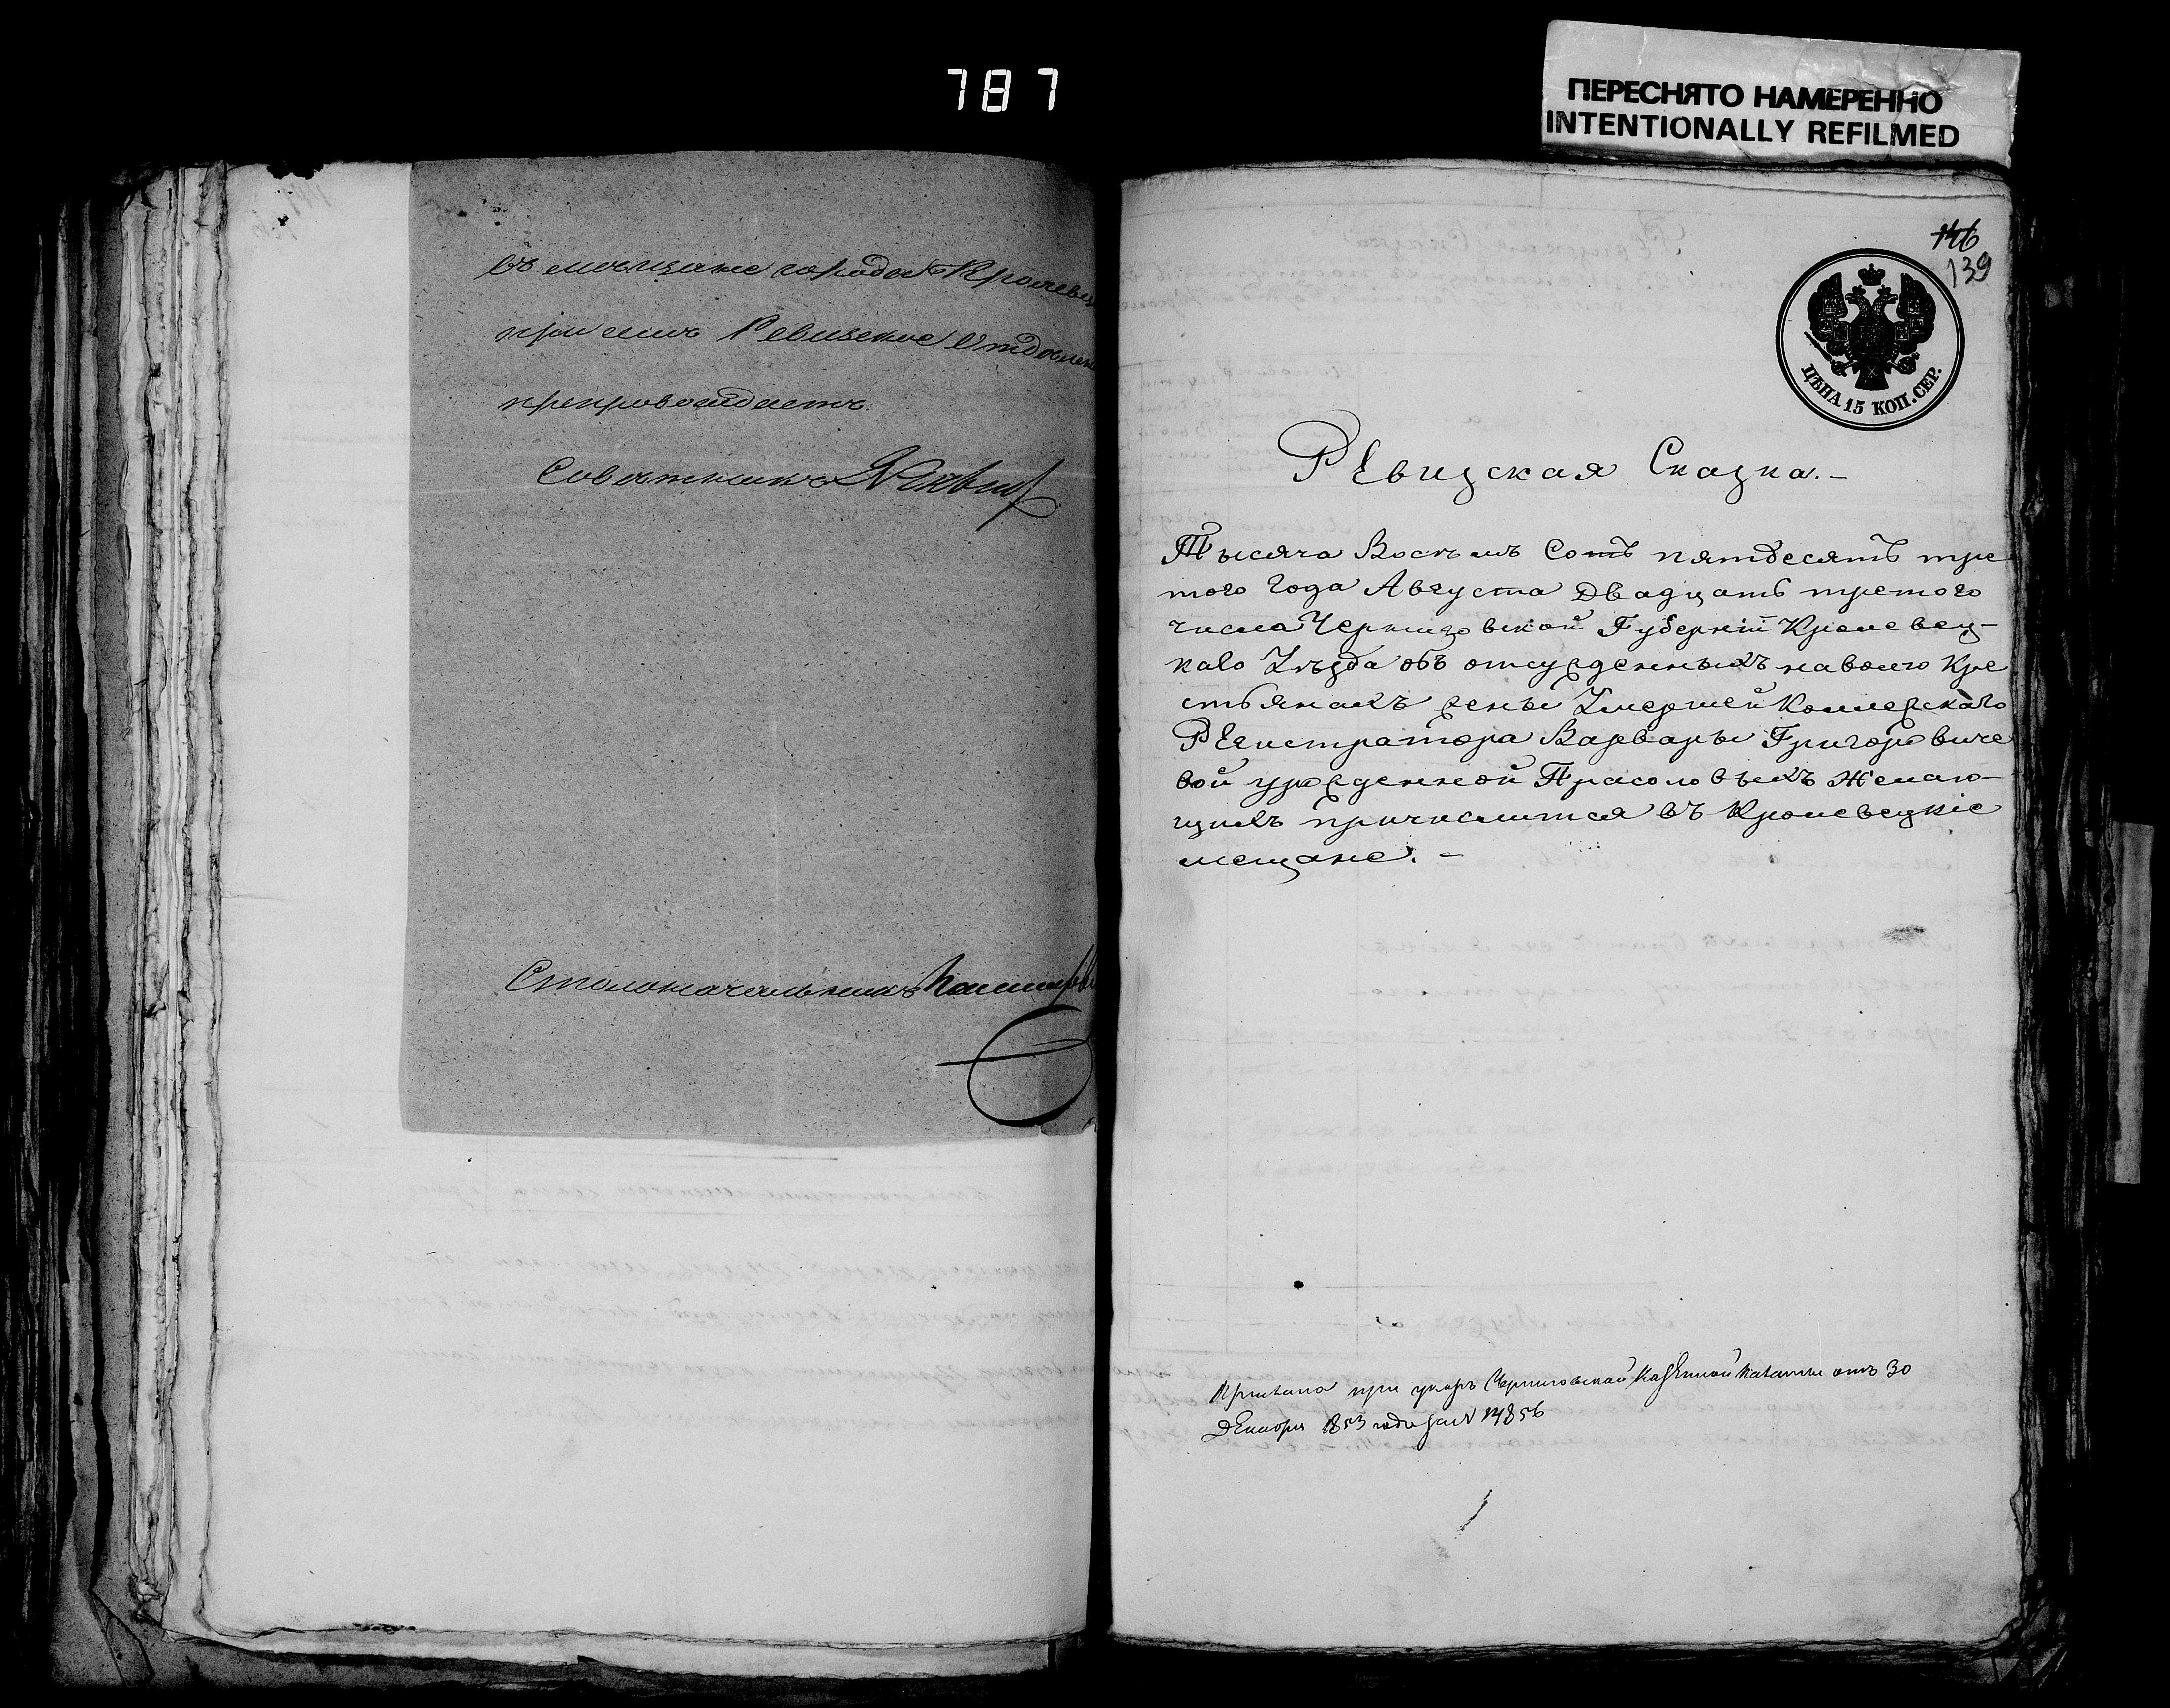 787
ПЕРЕСНЯТО НАМЕРЕННО
INTENTIONALLY REFILMED
въ мѣщане города Кролевца
при семъ Ревизское Отдѣлен
препровождаетъ.
Совѣтникъ
Столоначальникъ
146
139
ЦѢНА 15 КОП. СЕР.
Ревизская Сказка.-
Тысяча Восемъ Сотъ пятдесятъ тре
того года Августа Двадцать третого
числа Черниговской Губерніи Кролевец-
каго Уѣзда объ отсужденныхъ наволю кре
стьянахъ жены Умершей Коллежскаго
Регистратора Варвары Григоровиче
вой урожденной Прасоловыхъ Желаю-
щихъ причислится въ Кролевецкіе
мещане. -
при указѣ Черниговской Казенной Палаты отъ 30
Декабря 1853 года за N 14856